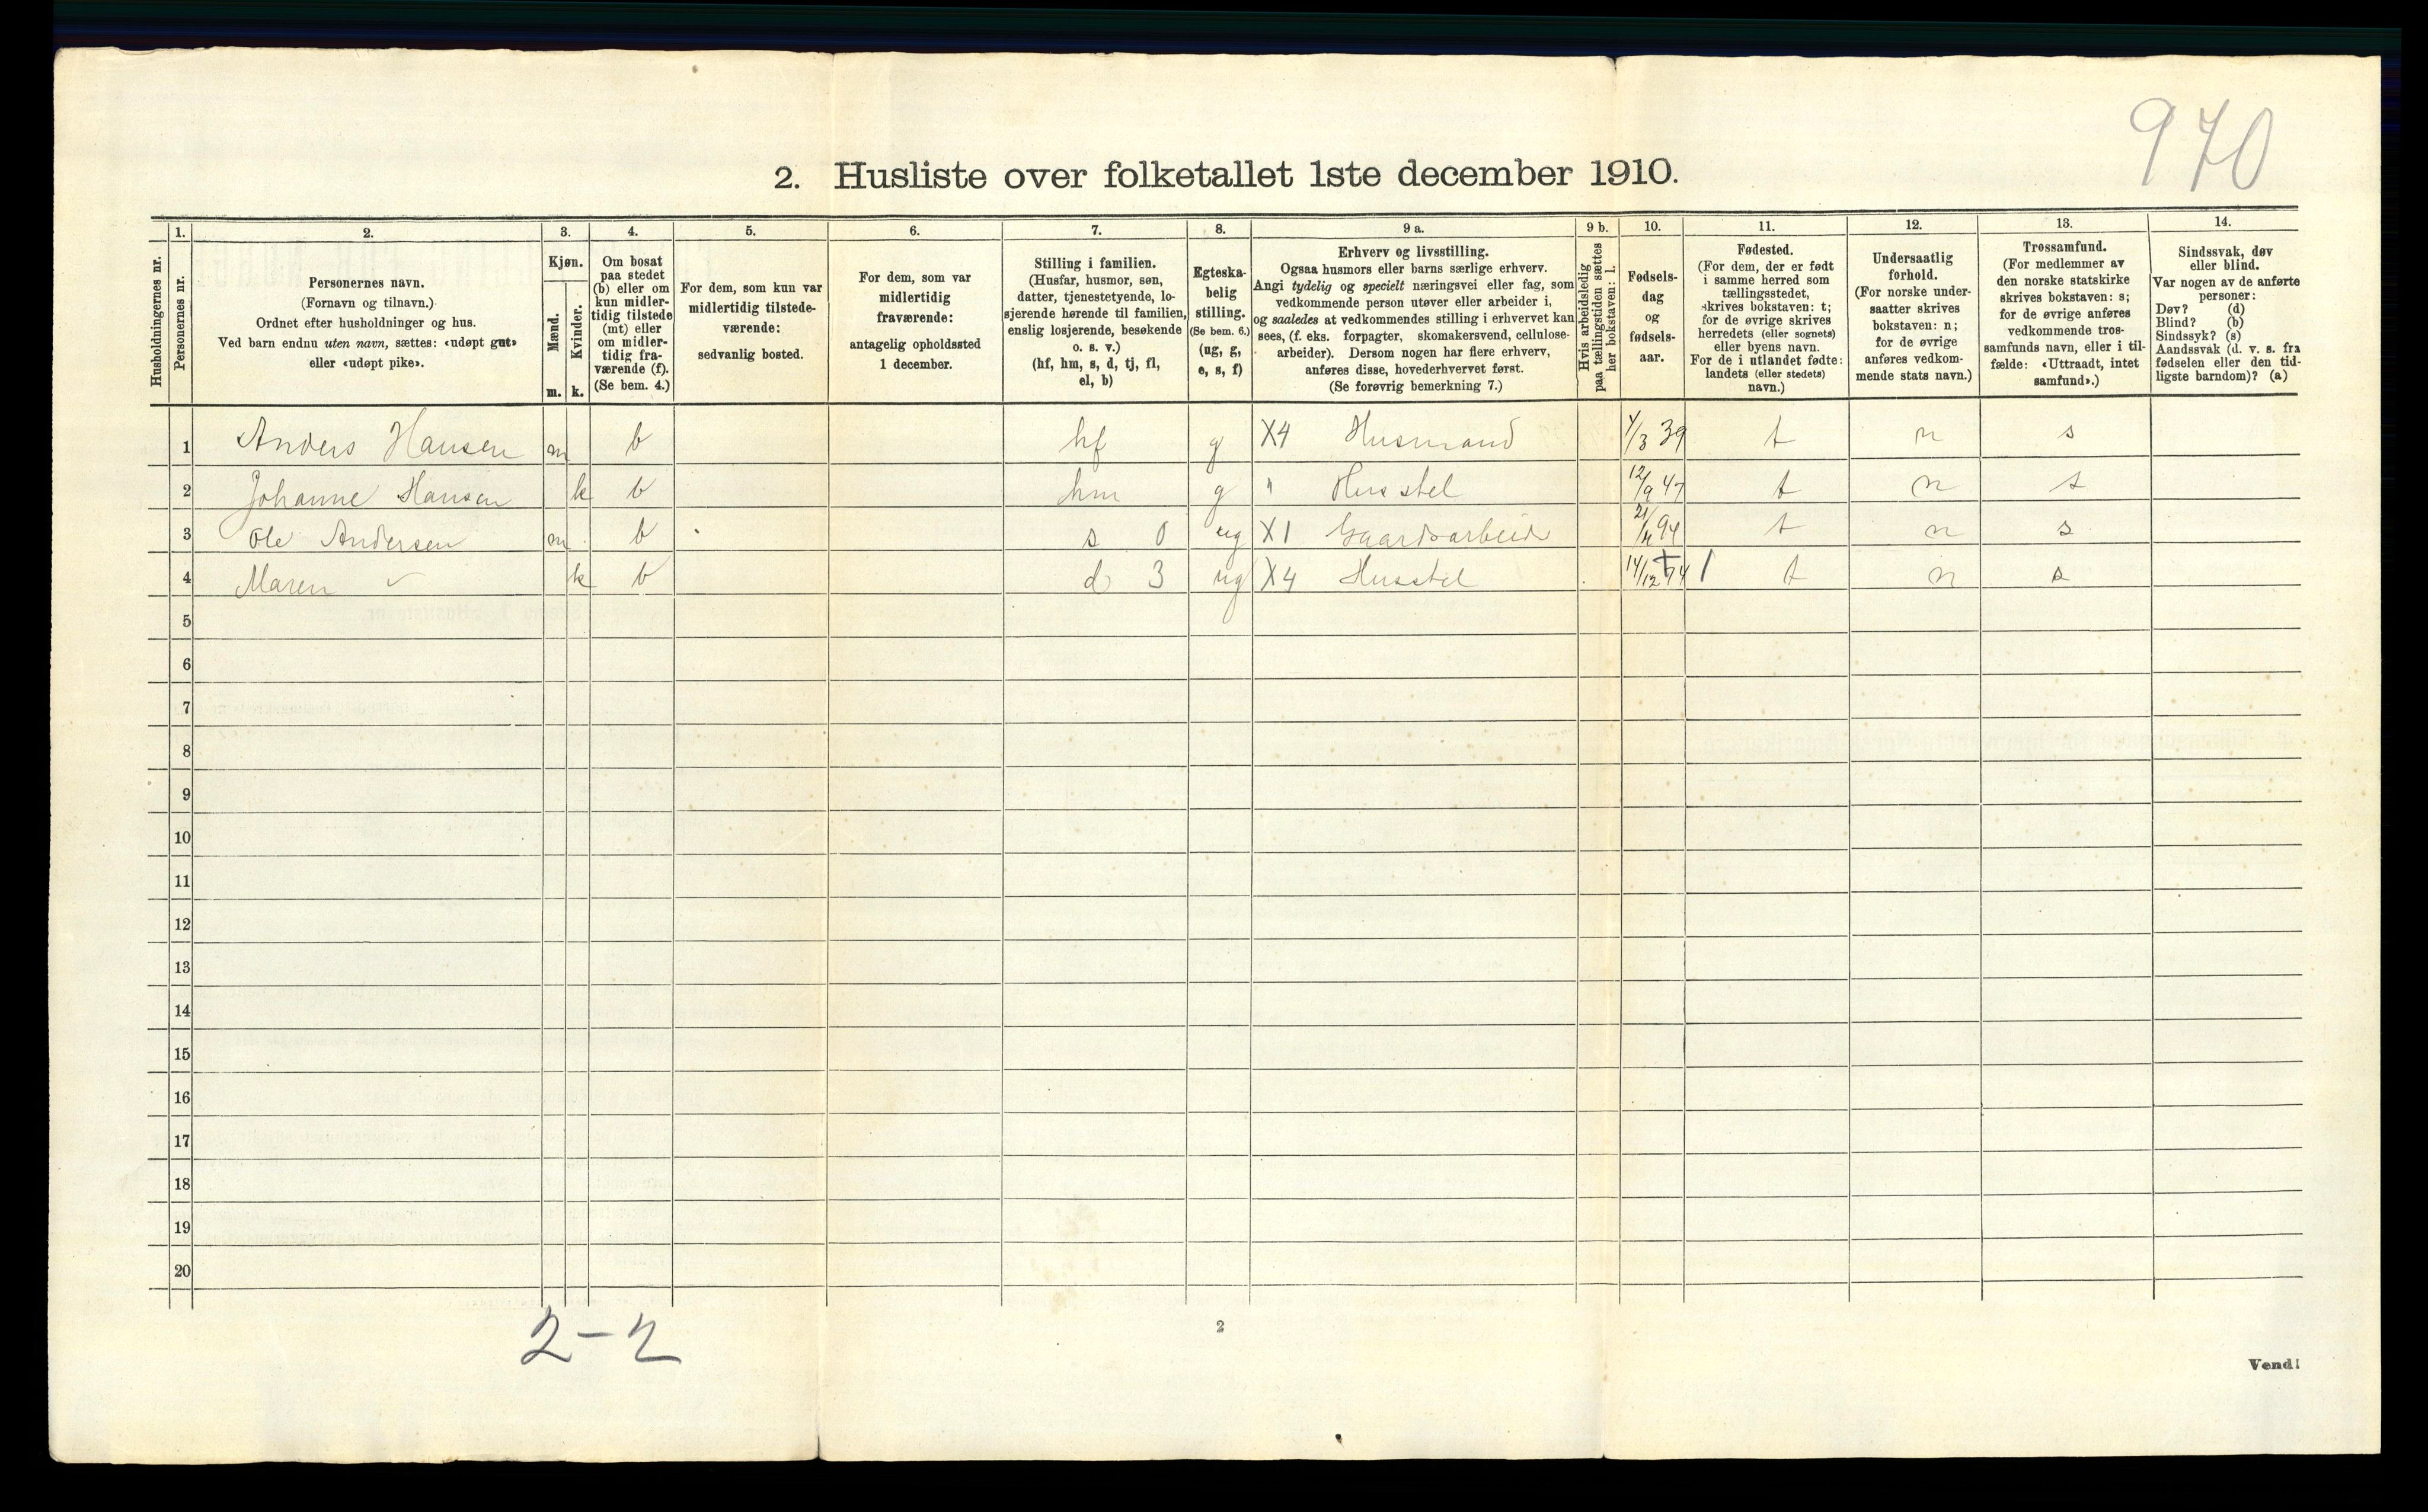 970
2. Husliste over folketallet 1ste december 1910.
Husholdningernes nr.
1.
Personernes nr.
2.
Personernes navn.
(Fornavn og tilnavn.)
Ordnet efter husholdninger og hus.
Ved barn endnu uten navn, sættes: «udøpt gut»
eller «udøpt pike».
3.
Kjøn.
Mænd.
Kvinder.
m. k.
4.
Om bosat
paa stedet
(b) eller om
kun midler-
tidig tilstede
(mt) eller
om midler-
tidig fra-
værende (f).
(Se bem. 4.)
5.
For dem, som kun var
midlertidig tilstede-
værende:
sedvanlig bosted.
6.
For dem, som var
midlertidig
fraværende:
antagelig opholdssted
1 december.
7.
Stilling i familien.
(Husfar, husmor, søn,
datter, tjenestetyende, lo-
sjerende hørende til familien,
enslig losjerende, besøkende
o. s. v.)
(hf, hm, s, d, tj, fl,
el, b)
8.
Egteska-
belig
stilling.
(Se bem. 6.)
(ug, g,
e, s, f)
9 a.
Erhverv og livsstilling.
Ogsaa husmors eller barns særlige erhverv.
Angi tydelig og specielt næringsvei eller fag, som
vedkommende person utøver eller arbeider i,
og saaledes at vedkommendes stilling i erhvervet kan
sees, (f. eks. forpagter, skomakersvend, cellulose-
arbeider). Dersom nogen har flere erhverv,
anføres disse, hovederhvervet først.
(Se forøvrig bemerkning 7.)
9 b.
Hvis arbeidsledig
paa tællingstiden sættes
her bokstaven: l.
10.
Fødsels-
dag
og
fødsels-
aar.
11.
Fødested.
(For dem, der er født
i samme herred som
tællingsstedet,
skrives bokstaven: t;
for de øvrige skrives
herredets (eller sognets)
eller byens navn.
For de i utlandet fødte:
landets (eller stedets)
navn.)
12.
Undersaatlig
forhold.
(For norske under-
saatter skrives
bokstaven: n;
for de øvrige
anføres vedkom-
mende stats navn.)
13.
Trossamfund.
(For medlemmer av
den norske statskirke
skrives bokstaven: s;
for de øvrige anføres
vedkommende tros-
samfunds navn, eller i til-
fælde: «Uttraadt, intet
samfund».)
14.
Sindssvak, døv
eller blind.
Var nogen av de anførte
personer:
Døv? (d)
Blind? (b)
Sindssyk? (s)
Aandssvak (d. v. s. fra
fødselen eller den tid-
ligste barndom)? (a)
1 Anders Hansen m b hf g X4 Husmand /3 39 t n s
2 Johanne Hansen k b hm g " Husstel 12/9 47 t n s
3 Ole Andersen m b s 0 ug X1 Gaardsarbeide 94 t n s
4 Maren k b d 3 ug X4 Husstel 14/12 74 t n s
5
6
7
8
9
10
11
12
13
14
15
16
17
18
19
20
2-2
2
Vend!